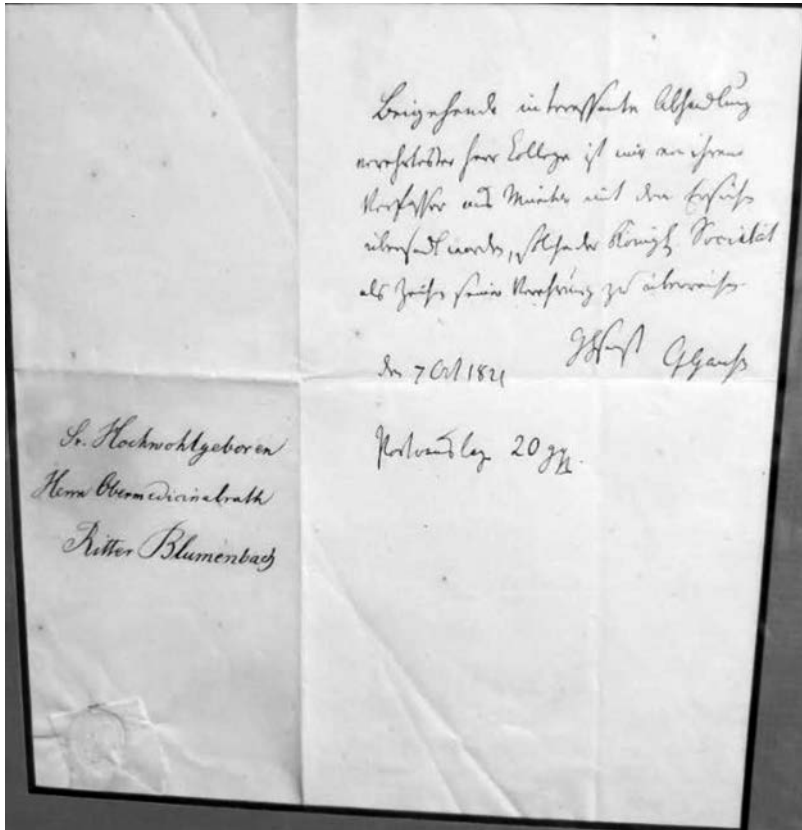 Beigehende interessante Abhandlung
verehrtester Herr College ist mir von ihrem
Verfasser aus Münster mit dem Ersuchen
übersandt worden, solche der Königl. Societät
als Zeichen seiner Verehrung zu überreichen
CGauß
den 7 Oct 1821
Portoauslage 20 ggr.
Sr. Hochwohlgeboren
Herrn Obermedicinalrath
Ritter Blumenbach